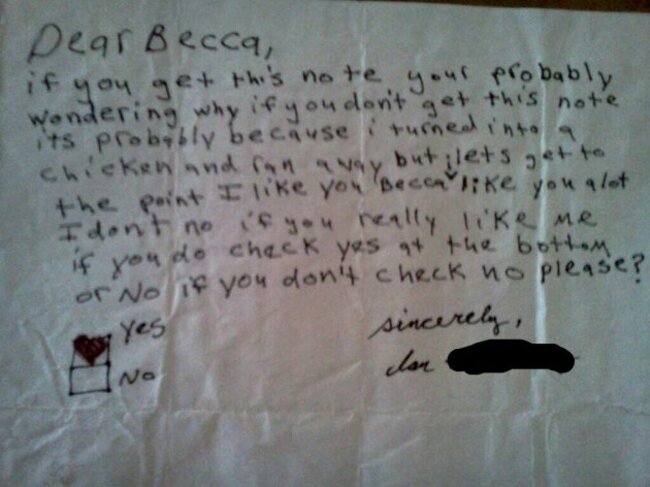 Dear Becca,
if you get this note your probably
wondering why if you don't get this note
its probably because i turned into a
chicken and ran away but lets get to
the point I like you Becca i like you alot
I dont no if you really like me
if you do check yes at the bottom
or No if you don't check no please?
Yes
No
sincerely,
Ian